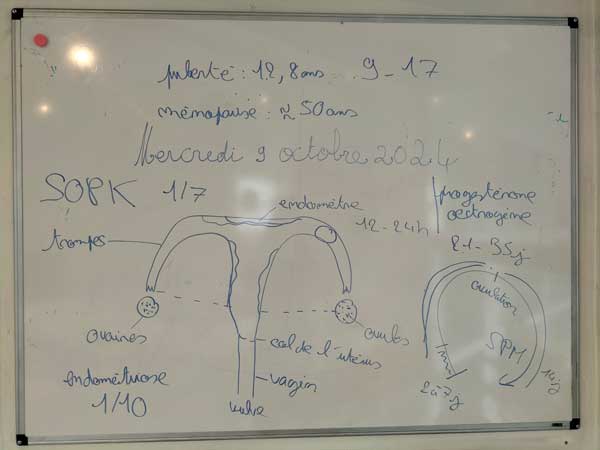 puberté : 12,8 ans 9 - 17
ménopause : ≈ 50 ans
Mercredi 9 octobre 2024
SOPK 1/7
endomètre
progestérone
œstrogène
trompes
12 - 24h
21 - 35j
ovulation
ovaires
ovules
col de l'utérus
SPM
endométriose
1/10
vagin
vulve
2 à 7j
14j